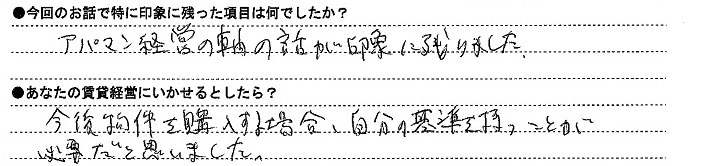 ●今回のお話で特に印象に残った項目は何でしたか？
アパマン経営の軸の話が印象に残りました。
●あなたの賃貸経営にいかせるとしたら？
今後物件を購入する場合、自分の基準を持つことが
必要だと思いました。